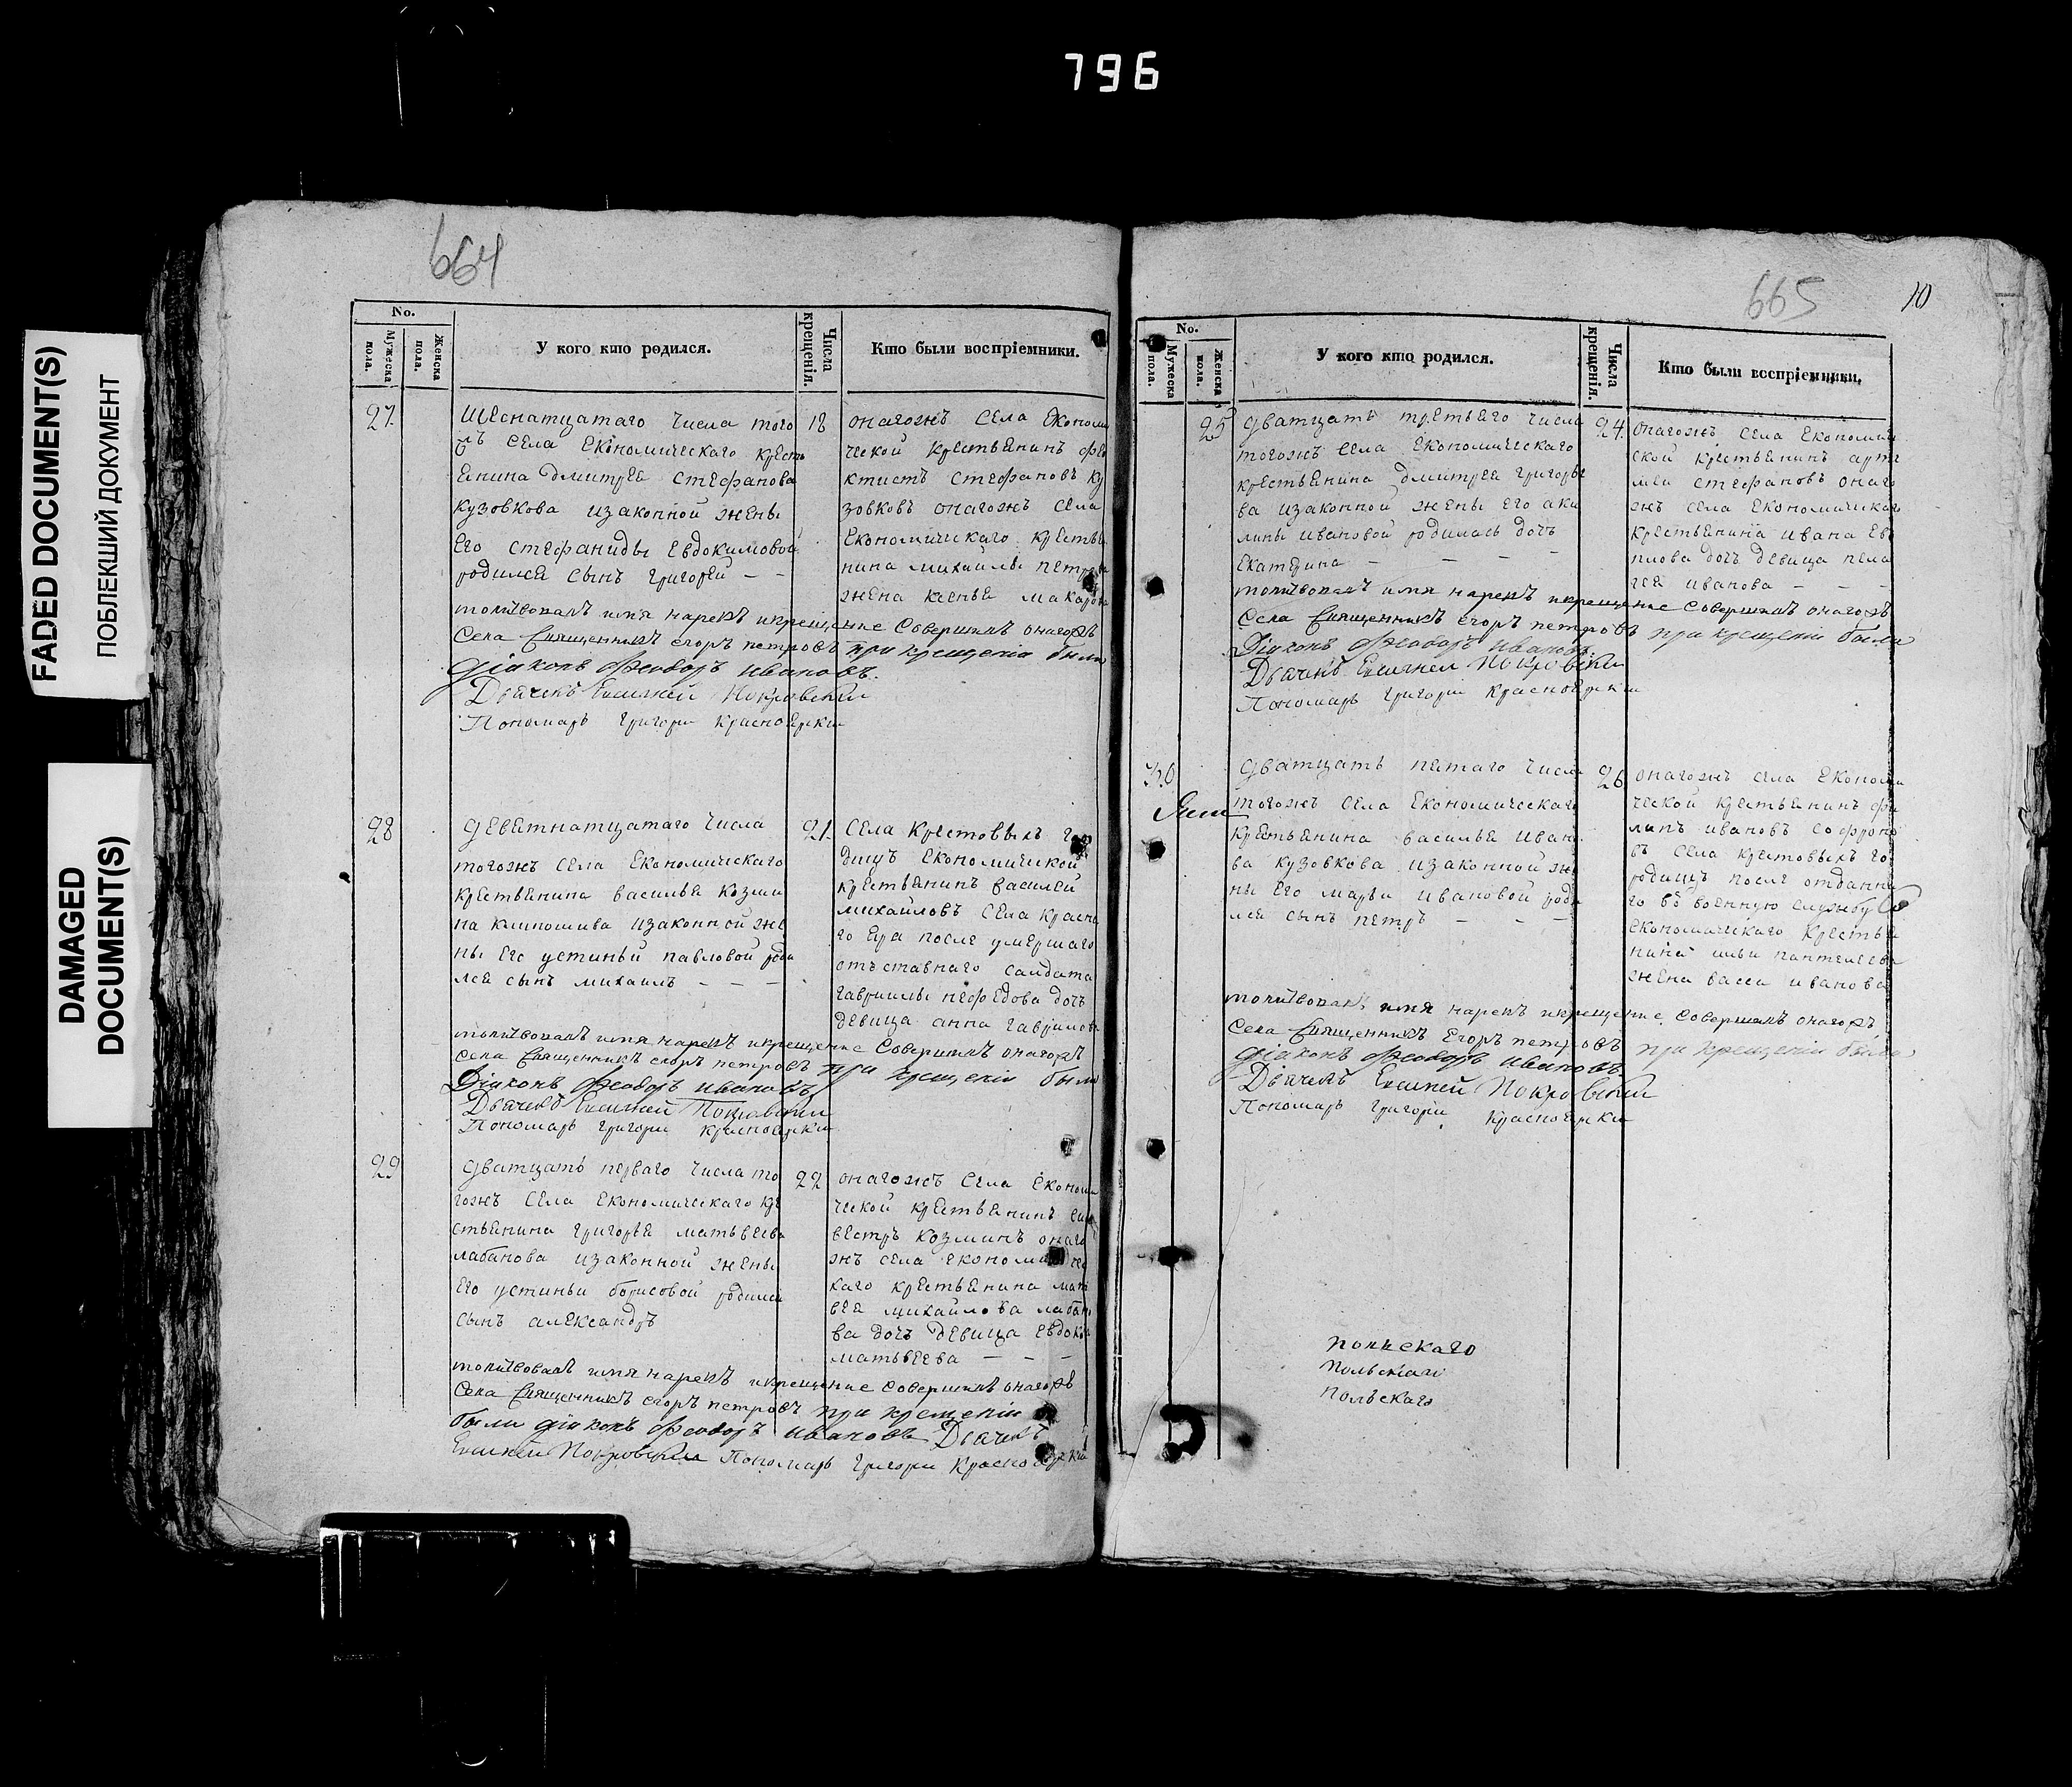 796
FADED DOCUMENT(S)
ПОБЛЕКШИЙ ДОКУМЕНТ
DAMAGED
DOCUMENT(S)
664
No.
Мужеска пола.
Женска пола.
У кого кто родился.
Числа крещенія.
Кто были воспріемники.
27.
Шеснатцатаго числа того
жъ села Економическаго крест
янина дмитрея стефанова
кузовкова изаконной жены
Его стефаниды Евдокимовой
родился сынъ григорей – –
18
онагожъ села Економи
ческой крестьянинъ фео
ктистъ стефановъ ку
зовковъ онагожъ села
Економическаго крестья
нина михайлы петрова
жена ксенья макарова
молитвовалъ имя нарекъ икрещение совершилъ онагожъ
села Священникъ егоръ петровъ при крещеніи были
Діаконъ Феодоръ ивановъ.
Дьячекъ Евсигней Покровский
Пономарь григори Красноярки
28
девятнатцатаго числа
тогожъ села Економическаго
крестьянина василья козми
на изаконной же
ны Его устиньи павловой роди
лся сынъ михаилъ – – –
21.
села Крестовыхъ го
дищъ економической
крестьянинъ василей
михайловъ села красна
го яра после умершаго
отъставнаго салдата
гаврилы нефедова дочь
девица анна гаврилова
молитвовалъ имя нарекъ икрещение совершилъ онагожъ
села Священникъ егоръ петровъ при крещеніи были
Діаконъ Феодоръ ивановъ
Дьячекъ Евсигней Покровский
Пономарь григори красноярки
29
дватцать перваго числа то
гожъ села економическаго кре
стьянина григорья матвеева
лабанова изаконной жены
его устиньи борисовой родился
сынъ александръ
22
онагожъ села Економи
ческой крестьянинъ сил
вестръ козминъ онаго
жъ села економическ
каго крестьянина мат
вея михайлова лабано
ва дочь девица Евдокия
матьвеева – – –
молитвовалъ имя нарекъ икрещение совершилъ онагожъ
села Священникъ егоръ петровъ при крещеніи
были діаконъ Феодоръ ивановъ Дьячекъ
Евсигней Покровский Пономарь григори Красноярки
665
10
No.
Мужеска пола.
Женска пола.
У кого кто родился.
Числа крещенія.
Кто были воспріемники.
25
дватцать третьего числа
тогожъ села Економическаго
крестьянина дмитрея григорье
ва изаконной жены его аки
лины ивановой родилась дочь
Екатерина – – –
24.
онагожъ села Економиче
ской крестьянинъ арте
мей стефановъ онаго
жъ села Економическаго
крестьянина ивана
дочь девица пела
гея иванова – – –
молитвовалъ имя нарекъ икрещение совершилъ онагожъ
села Священникъ егоръ петровъ при крещеніи были
Діаконъ Феодоръ ивановъ
Дьячекъ Евсигней Покровский
Пономарь григори красноярки
30
дватцать пятаго числа
тогожъ села Економическаго
крестьянина василья ивано
ва кузовкова изаконной же
ны его марьи ивановой роди
лся сынъ петръ – – –
26
онагожъ села Економи
ческой крестьянинъ фи
липъ ивановъ софроно
въ села крестовыхъ го
родищъ после отданна
го въ военную службу
економическаго крестья
нина ильи пантелеева
жена васса иванова
молитвовалъ имя нарекъ икрещение совершилъ онагожъ
села Священникъ Егоръ петровъ при крещеніи были
діаконъ Феодоръ ивановъ
Дьячекъ Евсигней Покровский
Пономарь григори красноярки
польскаго
польскаго
польскаго